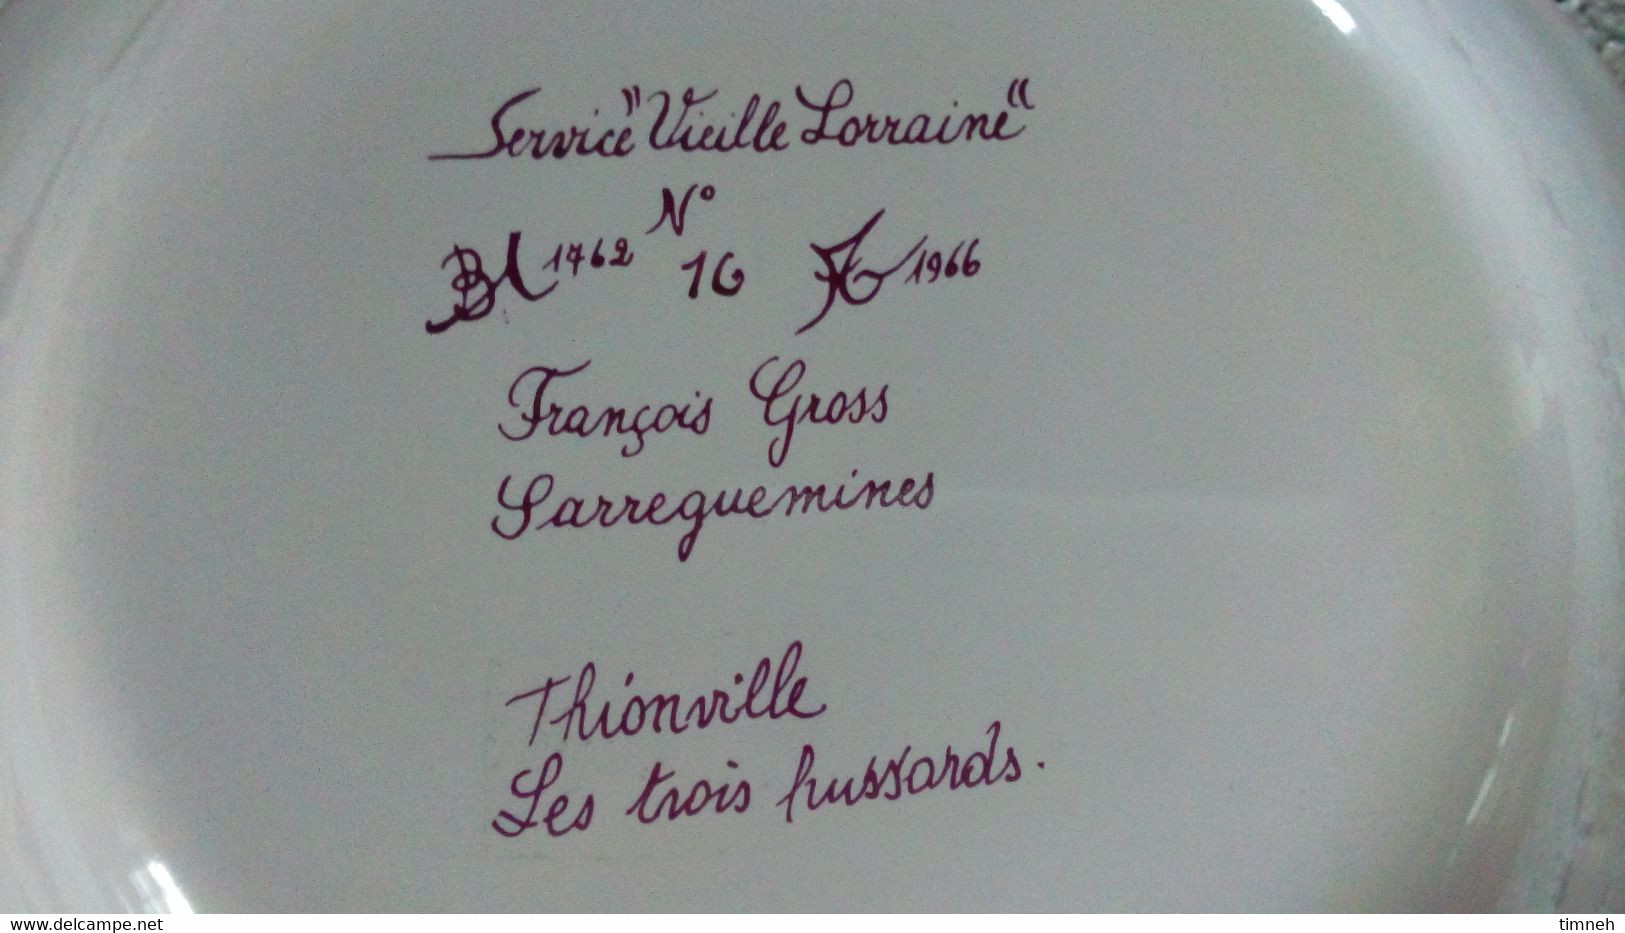 Service "Vieille Lorraine"
N°
1762 16 1966
François Gross
Sarreguemines
Thionville
Les trois hussards.
www.delcampe.net timneh